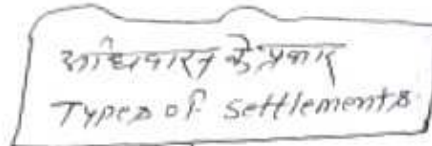 अधिवास के प्रकार
Types of Settlements